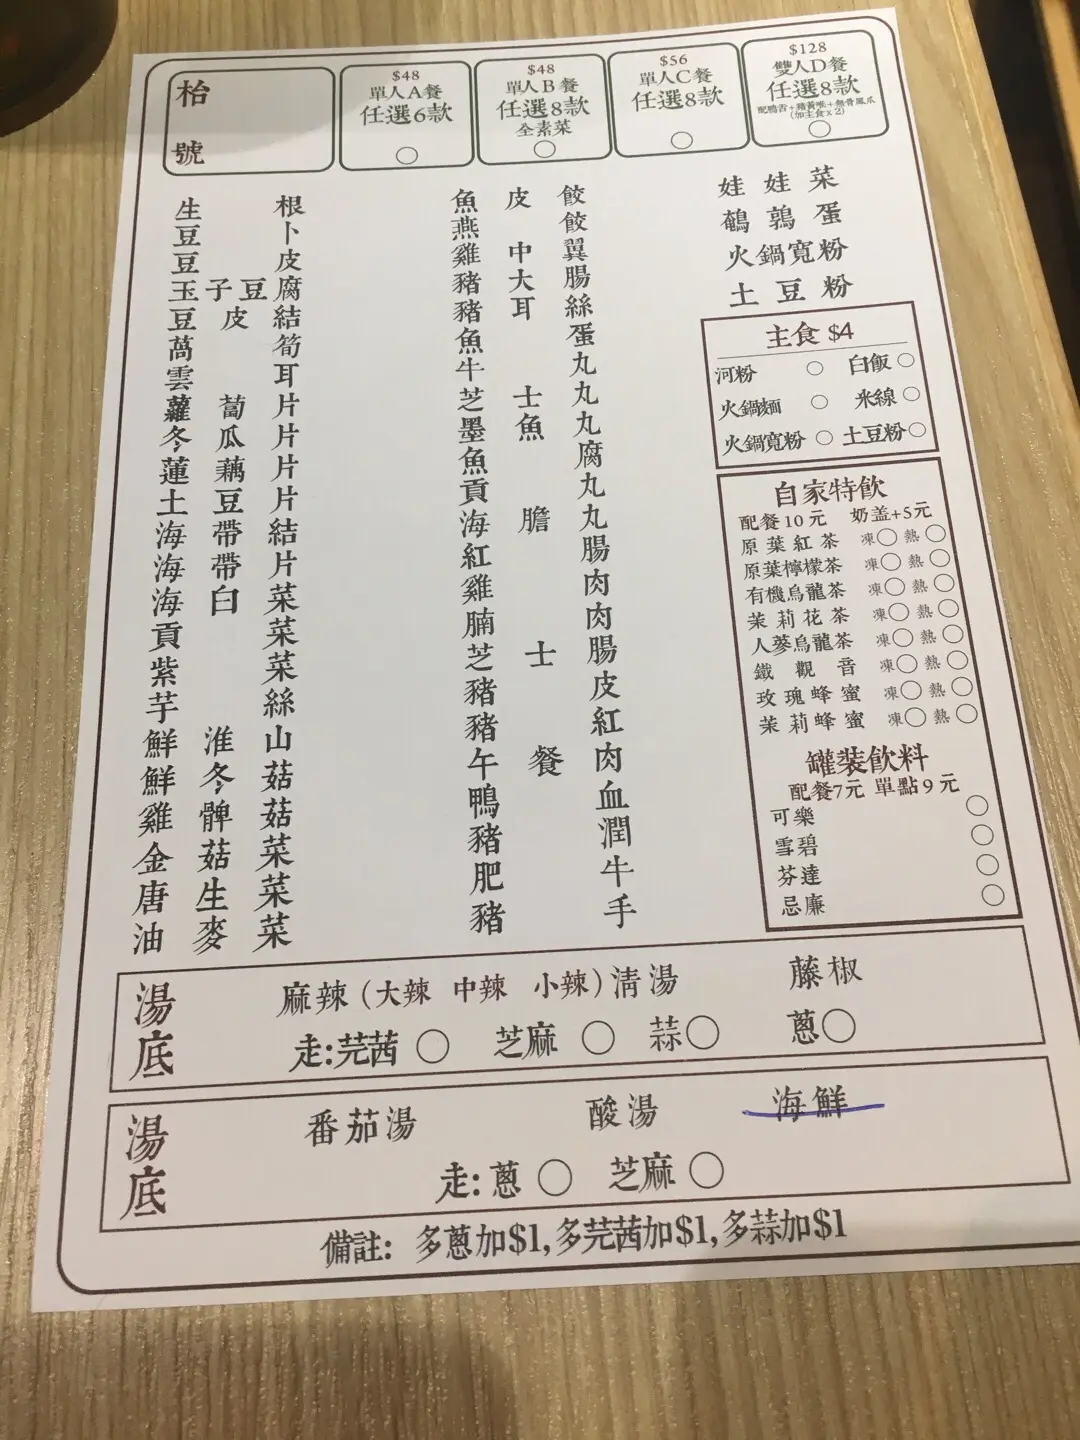 枱號
$48
單人A餐
任選6款
$48
單人B餐
任選8款
全素菜
$56
單人C餐
任選8款
$128
雙人D餐
任選8款
配鴨舌+豬黃喉+無骨鳳爪
(加主食x2)
生根
豆卜
豆皮
玉子豆腐
豆皮結
萵筍
雲耳
蘿蔔片
冬瓜片
蓮藕片
土豆片
海帶結
海帶片
海白菜
貢菜
紫菜
芋絲
鮮淮山
鮮冬菇
雞髀菇
金菇菜
唐生菜
油麥菜
魚皮餃
燕餃
雞中翼
豬大腸
豬耳絲
魚蛋
牛丸
芝士丸
墨魚丸
魚腐
貢丸
海膽丸
紅腸
雞肉
腩肉
芝士腸
豬皮
豬紅
午餐肉
鴨血
豬潤
肥牛
豬手
娃娃菜
鵪鶉蛋
火鍋寬粉
土豆粉
主食 $4
河粉 白飯
火鍋麵 米線
火鍋寬粉 土豆粉
自家特飲
配餐10元 奶盖+5元
原葉紅茶 凍 熱
原葉檸檬茶 凍 熱
有機烏龍茶 凍 熱
茉莉花茶 凍 熱
人蔘烏龍茶 凍 熱
鐵觀音 凍 熱
玫瑰蜂蜜 凍 熱
茉莉蜂蜜 凍 熱
罐装飲料
配餐7元 單點9元
可樂
雪碧
芬達
忌廉
湯底
麻辣(大辣 中辣 小辣)清湯 藤椒
走:芫茜 芝麻 蒜 蔥
湯底
番茄湯 酸湯 海鮮
走:蔥 芝麻
備註: 多蔥加$1,多芫茜加$1,多蒜加$1